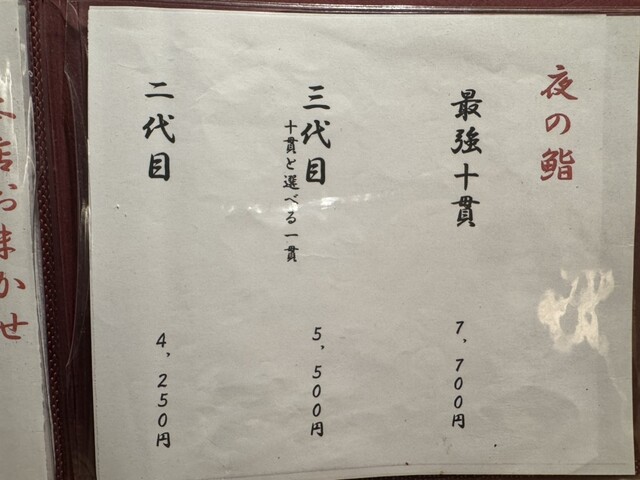 夜の鮨
最強十貫
7,700円
三代目
十貫と選べる一貫
5,500円
二代目
4,250円
店おまかせ